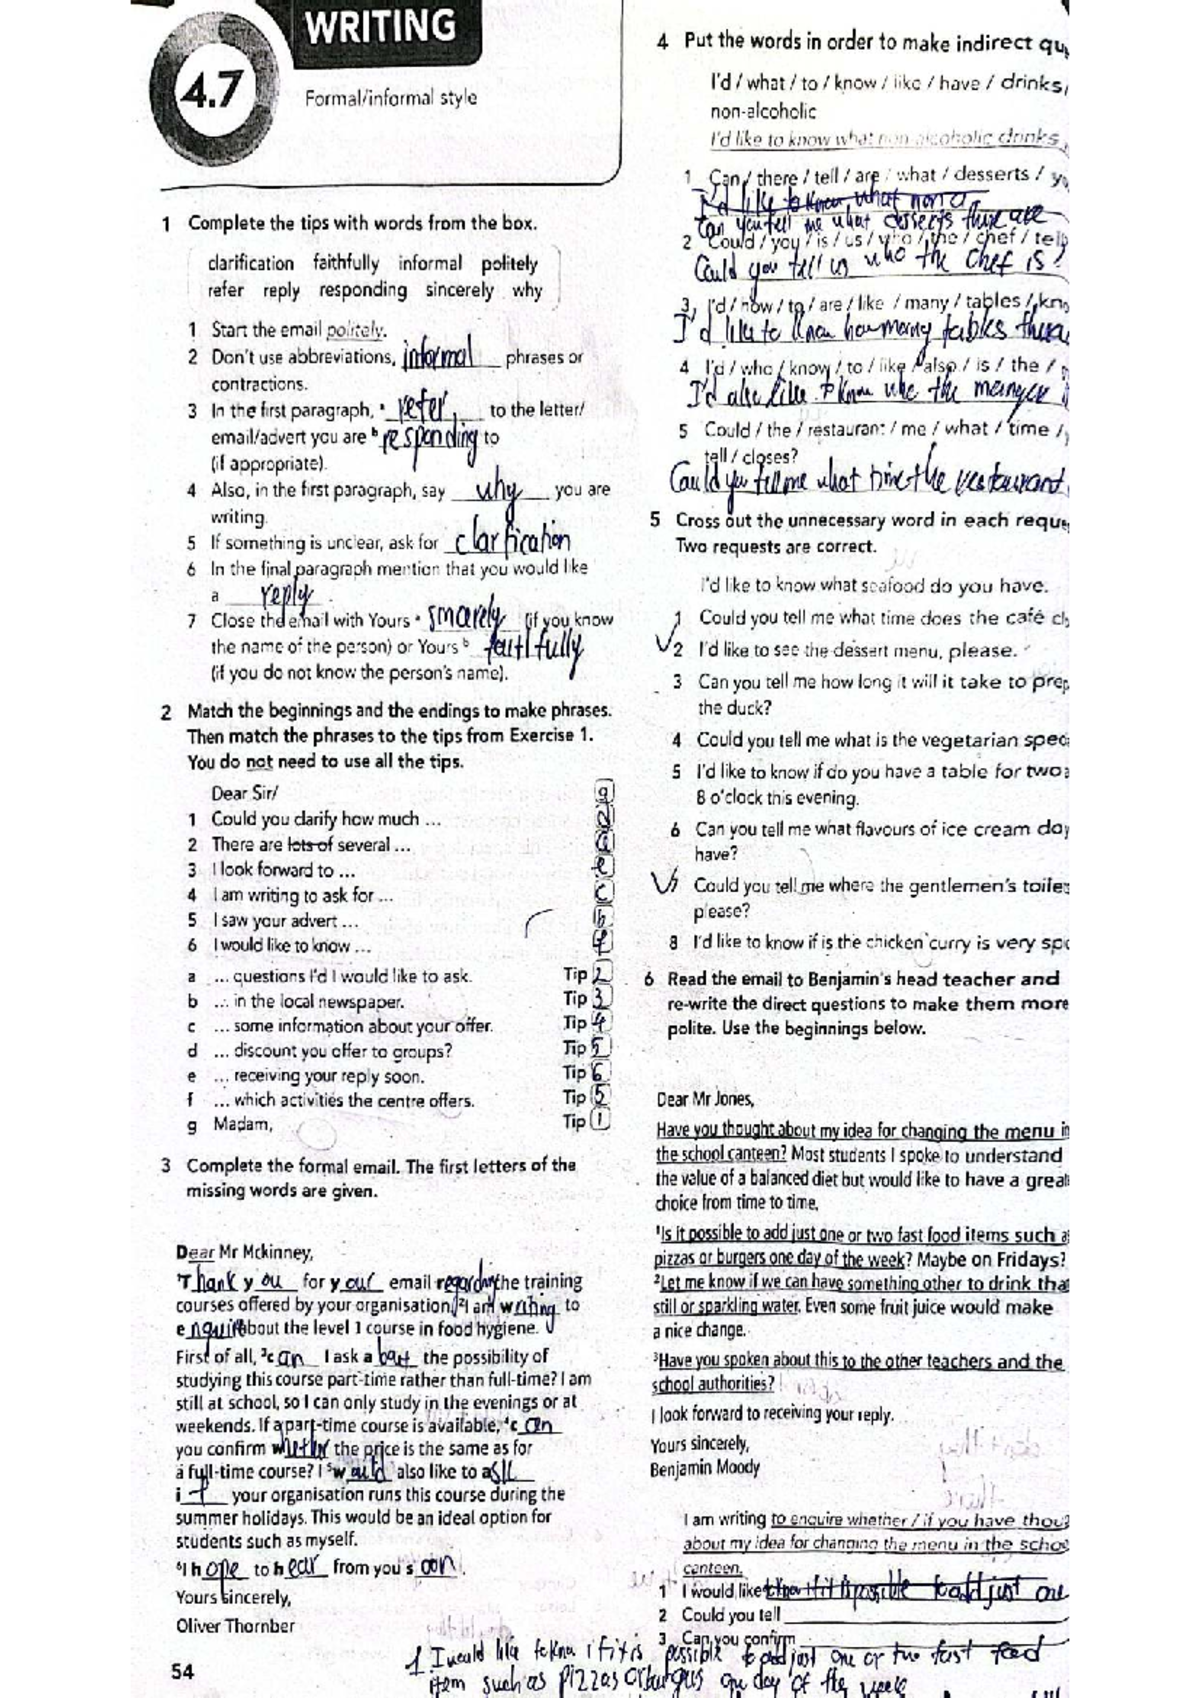 WRITING
4.7
Formal/informal style
1 Complete the tips with words from the box.
clarification faithfully informal politely
refer reply responding sincerely why
1 Start the email politely.
2 Don't use abbreviations, informal phrases or
contractions.
3 In the first paragraph, a refer to the letter/
email/advert you are b responding to
(if appropriate).
4 Also, in the first paragraph, say why you are
writing.
5 If something is unclear, ask for clarfication
6 In the final paragraph mention that you would like
a reply.
7 Close the email with Yours a smcarely (if you know
the name of the person) or Yours b faitlfully
(if you do not know the person's name).
2 Match the beginnings and the endings to make phrases.
Then match the phrases to the tips from Exercise 1.
You do not need to use all the tips.
Dear Sir/ g
1 Could you clarify how much ...
2 There are lots of several ... a
3 I look forward to ... e
4 I am writing to ask for ... c
5 I saw your advert ... b
6 I would like to know ... f
a ... questions I'd I would like to ask. Tip 2
b ... in the local newspaper. Tip 3
c ... some information about your offer. Tip 4
d ... discount you offer to groups? Tip 5
e ... receiving your reply soon. Tip 6
f ... which activities the centre offers. Tip 5
g Madam, Tip 1
3 Complete the formal email. The first letters of the
missing words are given.
Dear Mr Mckinney,
1 Thank you for your email regarding the training
courses offered by your organisation. 2 I am writing to
enquire about the level 1 course in food hygiene.
First of all, 3 can I ask a bout the possibility of
studying this course part-time rather than full-time? I am
still at school, so I can only study in the evenings or at
weekends. If a part-time course is available, 4 can
you confirm whether the price is the same as for
a full-time course? I 5 would also like to ask
i f your organisation runs this course during the
summer holidays. This would be an ideal option for
students such as myself.
6 I hope to hear from you soon.
Yours sincerely,
Oliver Thornber
54
4 Put the words in order to make indirect qu
I'd / what / to / know / like / have / drinks /
non-alcoholic
I'd like to know what non-alcoholic drinks
1 Can / there / tell / are / what / desserts / yo
I'd like to know what non a
Can you tell me what desserts there are
2 Could / you / is / us / who / the / chef / tell
Could you tell us who the chef is?
3 I'd / how / to / are / like / many / tables / kno
I'd like to know how many tables there
4 I'd / who / know / to / like / also / is / the /
I'd also like to know who the manger i
5 Could / the / restaurant / me / what / time /
tell / closes?
Could you tell me what time the restaurant
5 Cross out the unnecessary word in each reque
Two requests are correct.
I'd like to know what seafood do you have.
1 Could you tell me what time does the café cl
2 I'd like to see the dessert menu, please.
3 Can you tell me how long it will it take to prep
the duck?
4 Could you tell me what is the vegetarian spec
5 I'd like to know if do you have a table for two a
8 o'clock this evening.
6 Can you tell me what flavours of ice cream do y
have?
7 Could you tell me where the gentlemen's toilet
please?
8 I'd like to know if is the chicken curry is very spi
6 Read the email to Benjamin's head teacher and
re-write the direct questions to make them more
polite. Use the beginnings below.
Dear Mr Jones,
Have you thought about my idea for changing the menu in
the school canteen? Most students I spoke to understand
the value of a balanced diet but would like to have a great
choice from time to time.
1 Is it possible to add just one or two fast food items such a
pizzas or burgers one day of the week? Maybe on Fridays?
2 Let me know if we can have something other to drink tha
still or sparkling water. Even some fruit juice would make
a nice change.
3 Have you spoken about this to the other teachers and the
school authorities?
I look forward to receiving your reply.
Yours sincerely,
Benjamin Moody
I am writing to enquire whether / if you have thoug
about my idea for changing the menu in the schoo
canteen.
1 I would like to know if it is possible to add just one
2 Could you tell
3 Can you confirm
1 I would like to know if it is possible to add just one or two fast food
item such as pizzas or burgers one day of the week